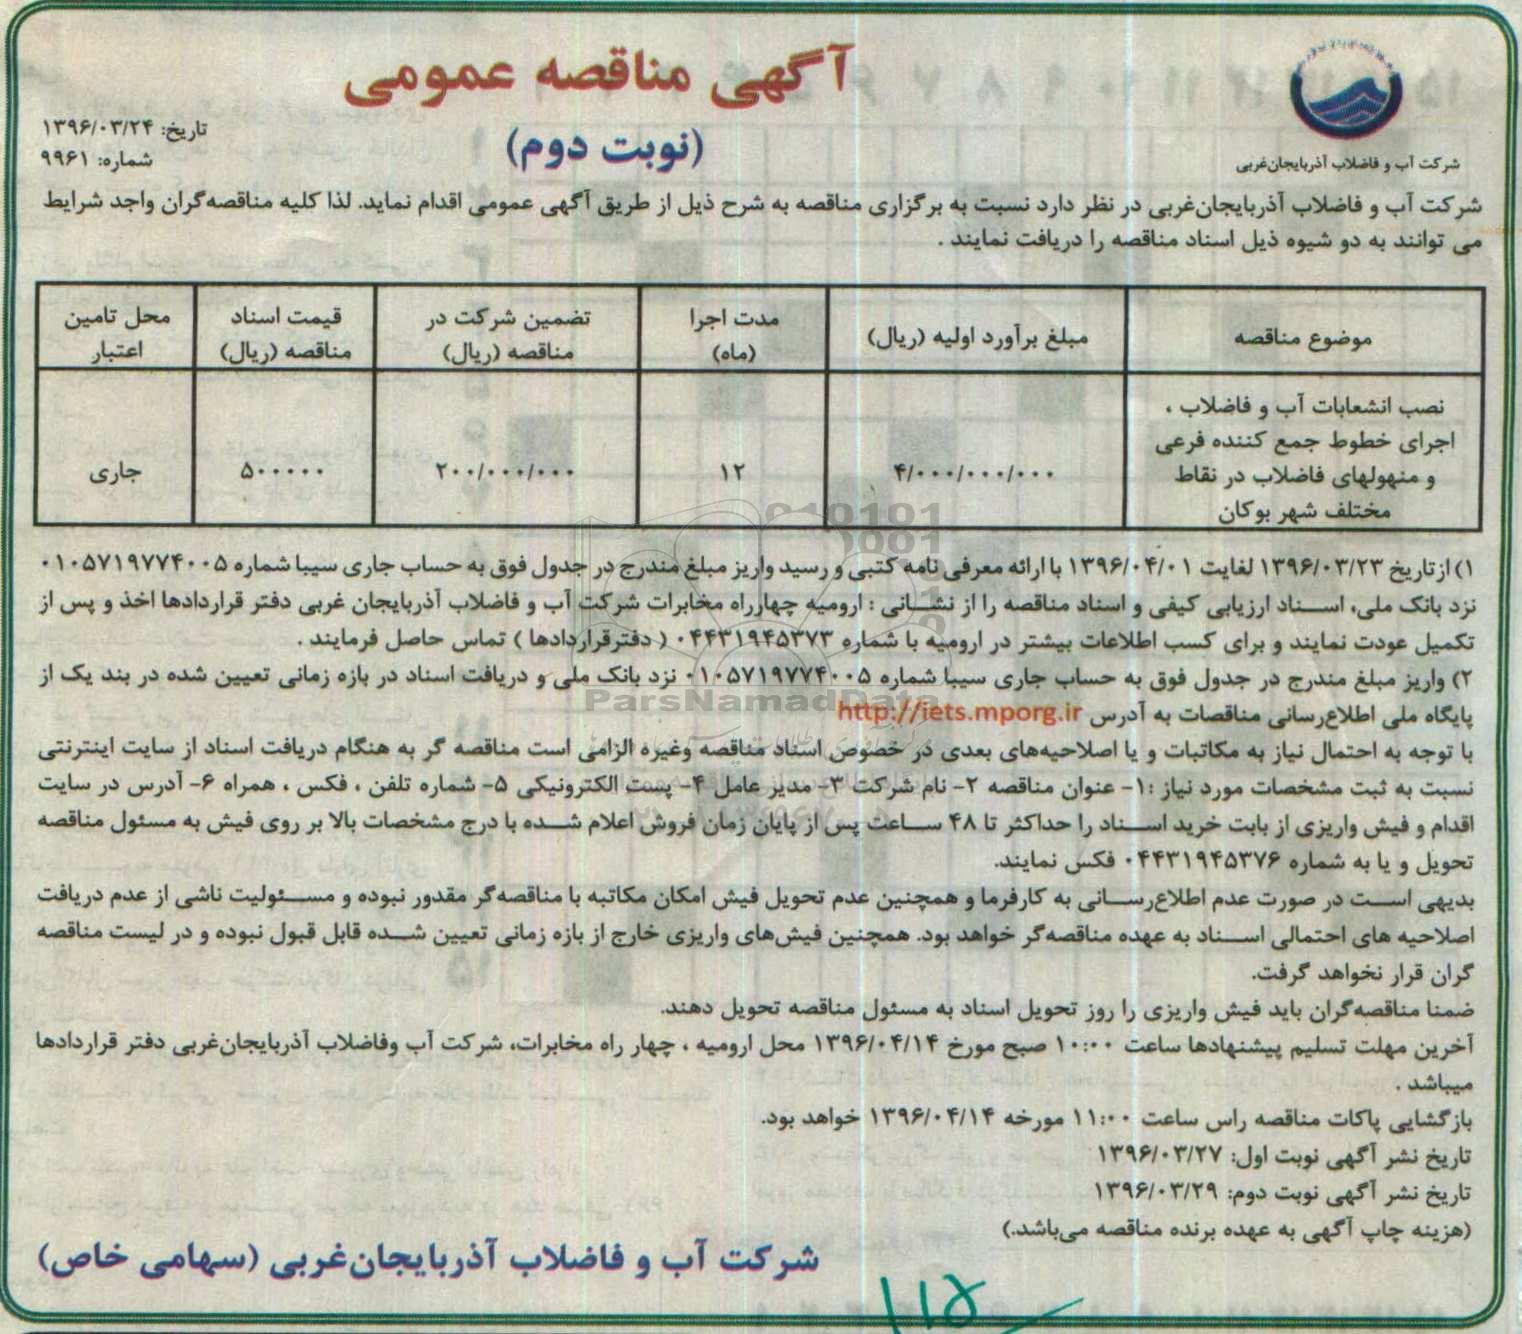 آگهی مناقصه عمومی
(نوبت دوم)
تاریخ: ۱۳۹۶/۰۳/۲۴
شماره: ۹۹۶۱
شرکت آب و فاضلاب آذربایجان‌غربی
شرکت آب و فاضلاب آذربایجان‌غربی در نظر دارد نسبت به برگزاری مناقصه به شرح ذیل از طریق آگهی عمومی اقدام نماید. لذا کلیه مناقصه‌گران واجد شرایط
می توانند به دو شیوه ذیل اسناد مناقصه را دریافت نمایند .
موضوع مناقصه
مبلغ برآورد اولیه (ریال)
مدت اجرا
(ماه)
تضمین شرکت در
مناقصه (ریال)
قیمت اسناد
مناقصه (ریال)
محل تامین
اعتبار
نصب انشعابات آب و فاضلاب ،
اجرای خطوط جمع کننده فرعی
و منهولهای فاضلاب در نقاط
مختلف شهر بوکان
۴/۰۰۰/۰۰۰/۰۰۰
۱۲
۲۰۰/۰۰۰/۰۰۰
۵۰۰۰۰۰
جاری
۱) ازتاریخ ۱۳۹۶/۰۳/۲۳ لغایت ۱۳۹۶/۰۴/۰۱ با ارائه معرفی نامه کتبی و رسید واریز مبلغ مندرج در جدول فوق به حساب جاری سیبا شماره ۰۱۰۵۷۱۹۷۷۴۰۰۵
نزد بانک ملی، اسناد ارزیابی کیفی و اسناد مناقصه را از نشانی : ارومیه چهارراه مخابرات شرکت آب و فاضلاب آذربایجان غربی دفتر قراردادها اخذ و پس از
تکمیل عودت نمایند و برای کسب اطلاعات بیشتر در ارومیه با شماره ۰۴۴۳۱۹۴۵۳۷۳ ( دفترقراردادها ) تماس حاصل فرمایند .
۲) واریز مبلغ مندرج در جدول فوق به حساب جاری سیبا شماره ۰۱۰۵۷۱۹۷۷۴۰۰۵ نزد بانک ملی و دریافت اسناد در بازه زمانی تعیین شده در بند یک از
پایگاه ملی اطلاع‌رسانی مناقصات به آدرس http://iets.mporg.ir
ParsNamadData
با توجه به احتمال نیاز به مکاتبات و یا اصلاحیه‌های بعدی در خصوص اسناد مناقصه وغیره الزامی است مناقصه گر به هنگام دریافت اسناد از سایت اینترنتی
نسبت به ثبت مشخصات مورد نیاز :۱- عنوان مناقصه ۲- نام شرکت ۳- مدیر عامل ۴- پست الکترونیکی ۵- شماره تلفن ، فکس ، همراه ۶- آدرس در سایت
اقدام و فیش واریزی از بابت خرید اسناد را حداکثر تا ۴۸ ساعت پس از پایان زمان فروش اعلام شده با درج مشخصات بالا بر روی فیش به مسئول مناقصه
تحویل و یا به شماره ۰۴۴۳۱۹۴۵۳۷۶ فکس نمایند.
بدیهی است در صورت عدم اطلاع‌رسانی به کارفرما و همچنین عدم تحویل فیش امکان مکاتبه با مناقصه‌گر مقدور نبوده و مسئولیت ناشی از عدم دریافت
اصلاحیه های احتمالی اسناد به عهده مناقصه‌گر خواهد بود. همچنین فیش‌های واریزی خارج از بازه زمانی تعیین شده قابل قبول نبوده و در لیست مناقصه
گران قرار نخواهد گرفت.
ضمنا مناقصه‌گران باید فیش واریزی را روز تحویل اسناد به مسئول مناقصه تحویل دهند.
آخرین مهلت تسلیم پیشنهادها ساعت ۱۰:۰۰ صبح مورخ ۱۳۹۶/۰۴/۱۴ محل ارومیه ، چهار راه مخابرات، شرکت آب وفاضلاب آذربایجان‌غربی دفتر قراردادها
میباشد .
بازگشایی پاکات مناقصه راس ساعت ۱۱:۰۰ مورخه ۱۳۹۶/۰۴/۱۴ خواهد بود.
تاریخ نشر آگهی نوبت اول: ۱۳۹۶/۰۳/۲۷
تاریخ نشر آگهی نوبت دوم: ۱۳۹۶/۰۳/۲۹
(هزینه چاپ آگهی به عهده برنده مناقصه می‌باشد.)
شرکت آب و فاضلاب آذربایجان‌غربی (سهامی خاص)